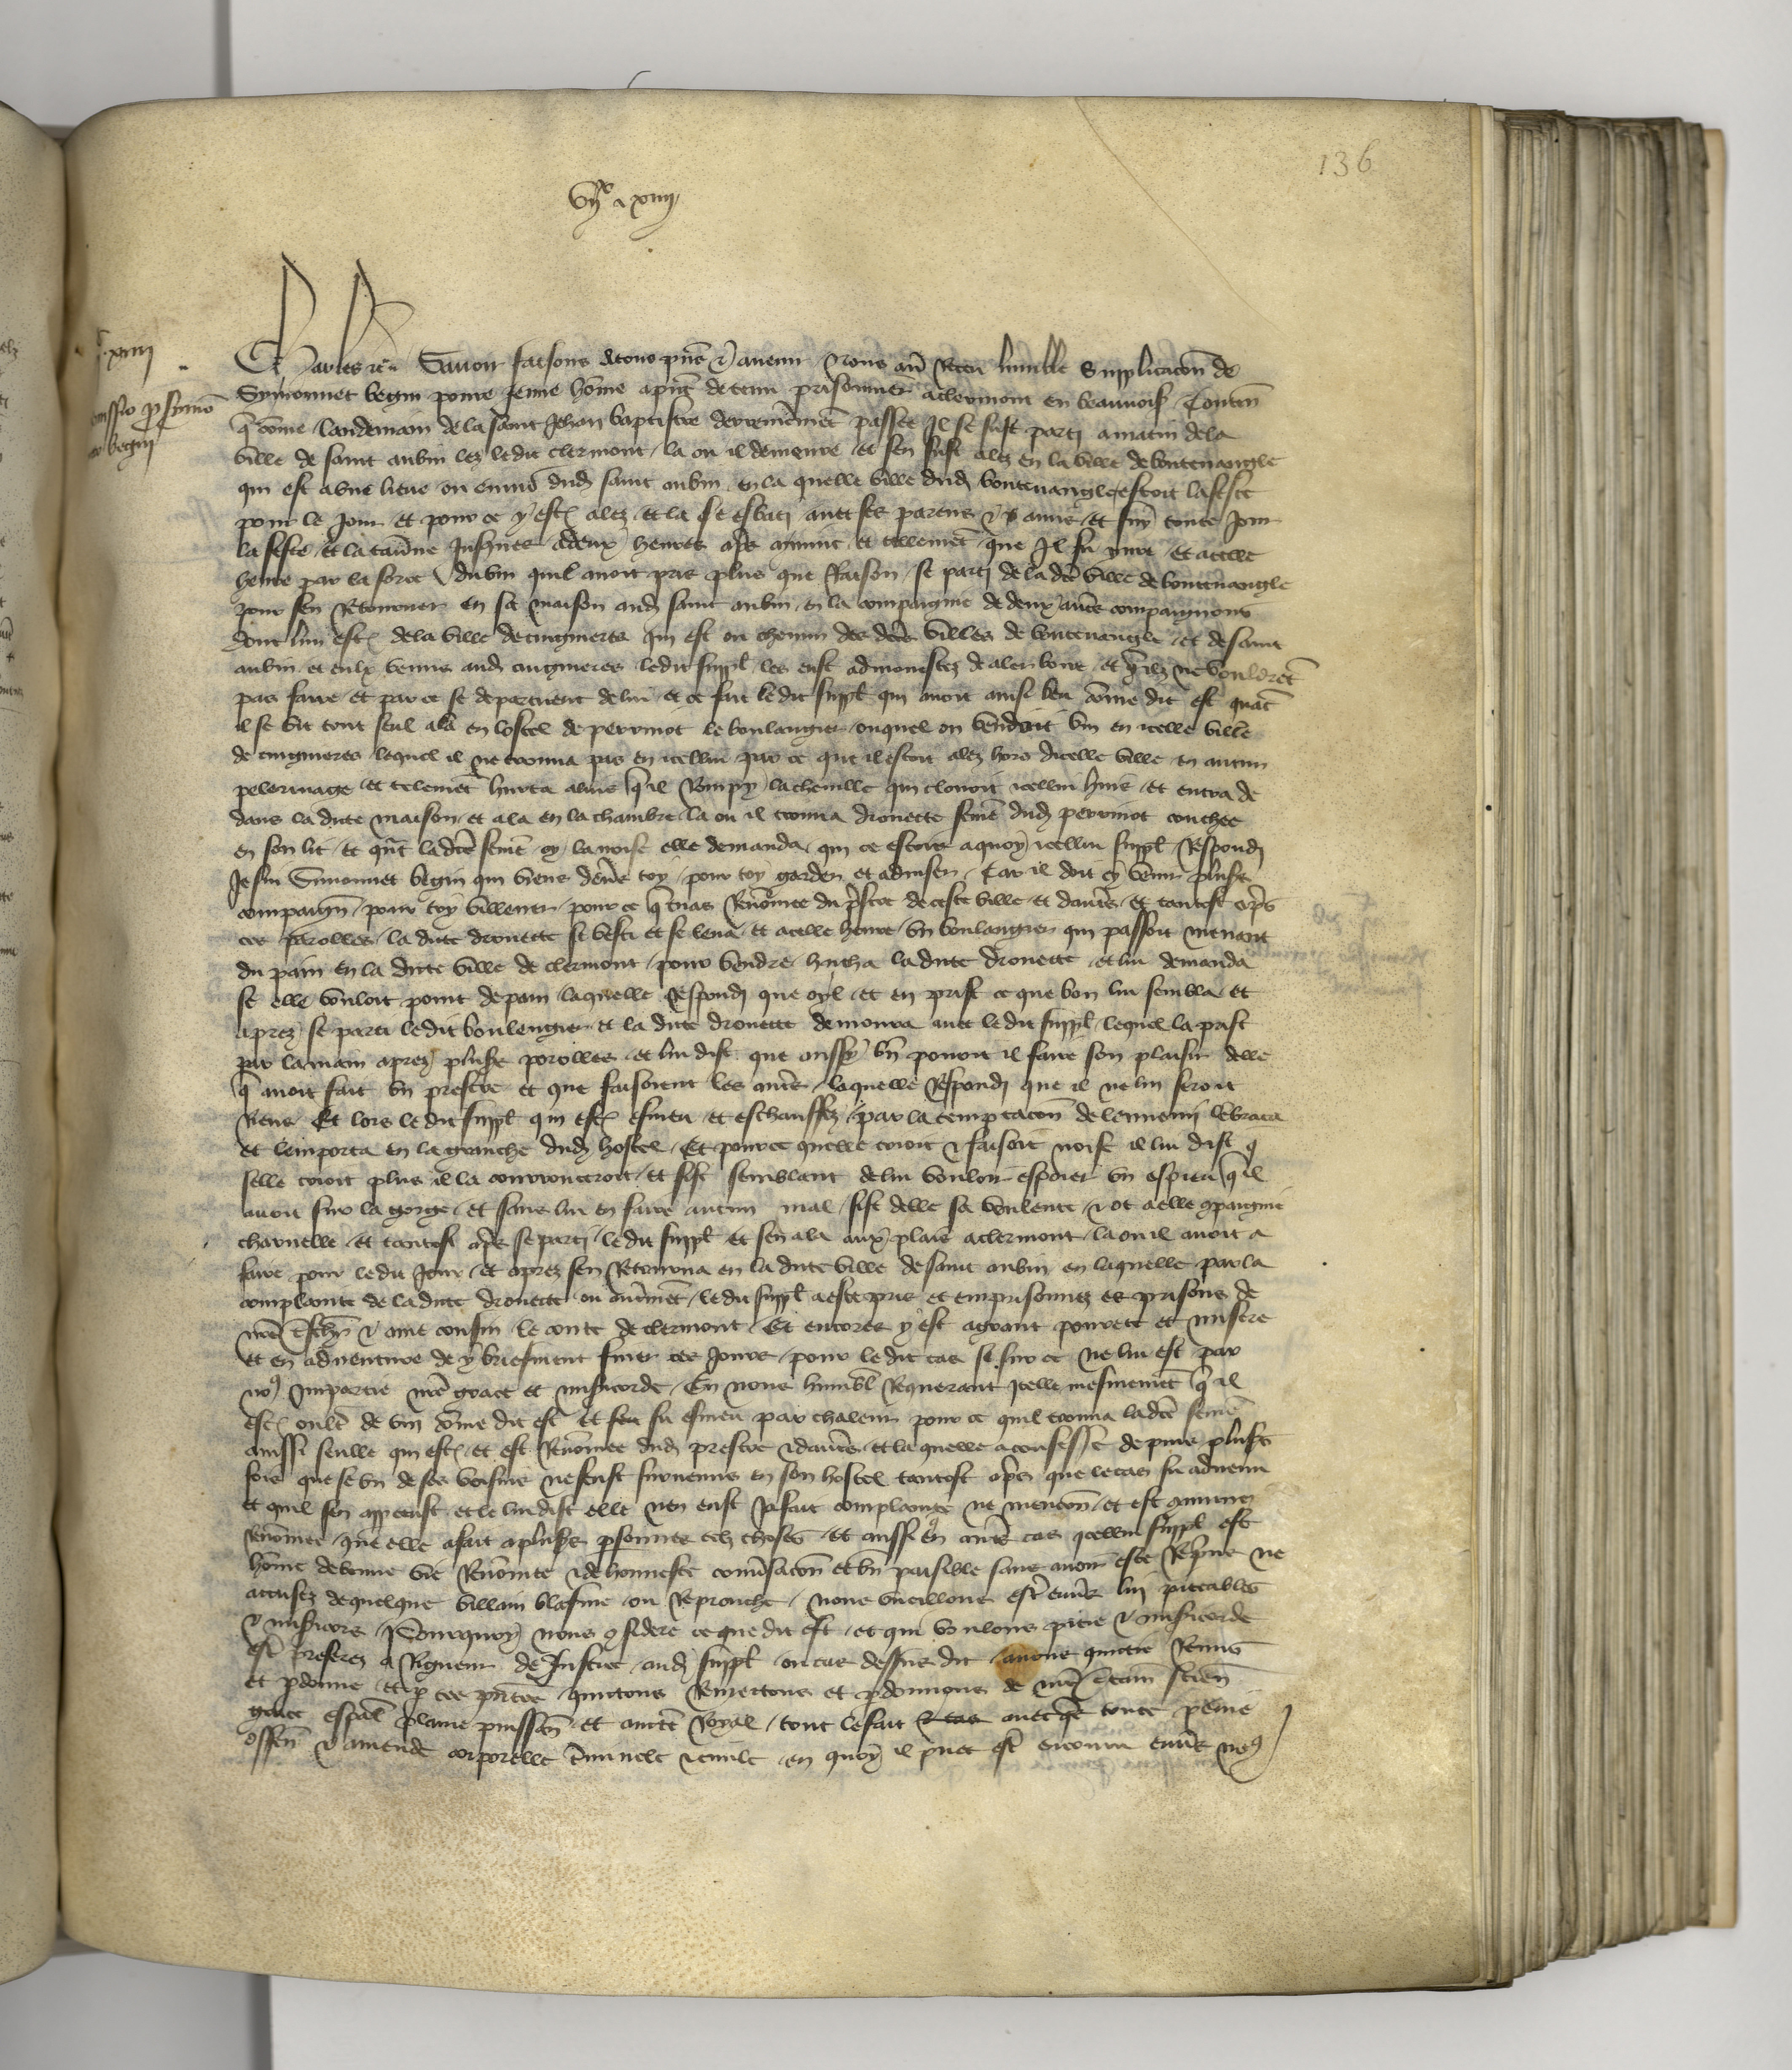 136
vii xx xiiii
xiiii
Charles etc Savoir faisons a tous pns et avenir Nous avoir Receu lumble Supplicacion de
remissio pro simon
Symonnet begin povre Jeune home a present detenu prisonnier a clermont en beauvoisis Contenant
begin
que come landemain de la saint Jehan baptistre derrenierement passee Il se fust parti a matin de la
ville de saint aubin lez ledit clermont la ou il demeure et sen fust alez en la ville de boutenangle
qui est a une lieue ou environ dudit saint aubin en la quelle ville dudit boutenangle estoit la feste
pour le Jour et pour ce y estoit alez et la se esbati avec ses parens et amis et suy toute Jour
la feste et la taverne Jusques a deux heures apres minuit et tellement que Il fu yvre et a celle
heure par la force du vin quil avoit pris plus que Raison se parti de la dicte ville de boutenangle
pour sen Retourner en sa maison audit saint aubin en la compaignie de deux autres compaignons
dont lun estoit de la ville de cugnieres qui est ou chemin des dictes villes de boutenangle et de saint
aubin et eulx venus audit cugnieres ledit suppl les eust admonestez de aler boire et quilz ne vouldrent
pas faire et par ce se departirent de lui et ce fait ledit suppl qui avoit ainsi beu come dit est quant
il se vit tout seul ala en lostel de perrinot le boulangier ouquel on vendoit vin en icelle ville
de cugnieres lequel il ne trouva pas en icellui par ce que il estoit alez hors dicelle ville en aucun
pelerinage et telement hurta a luis quil Rompy la cheville qui clouoit icellui huis et entra de
dans la dicte maison et ala en la chambre la ou il trouva drouette feme dudit perrinot couchee
en son lit et quant ladicte feme oy la noise elle demanda qui ce estoit a quoy icellui suppl Respondi
Je sui Simonnet begin qui viens devers toy pour toy garder et adviser Car il doit cy venir plusieurs
compaignons pour toy villener pour ce que tu as Renomee du prestre de ceste ville et dautres et tantost apres
ces parolles la dicte drouette se vesti et se leva et a celle heure un boulangier qui passoit menant
du pain en la dicte ville de clermont pour vendre hucha ladicte drouette et lui demanda
se elle vouloit point de pain laquelle Respondi que oyl et en prist ce que bon lui sembla et
aprez se parti ledit boulengier et la dicte drouette demoura avec ledit suppl lequel la prist
par la main aprez plusieurs parolles et lui dist que aussy bien povoit il faire son plaisir delle
que avoit fait un prestre et que faisoient les autres laquelle Respondi que il ne lui feroit
Riens Et lors ledit suppl qui estoit esmeu et eschauffez par la temptacion de lennemi lembraca
et lemporta en la granche dudit hostel Et pource quelle crioit et faisoit noise il lui dist que
selle crioit plus il la courrouceroit et fist semblant de lui vouloir espoier un espieu quil
avoit sur la gorge et sans lui en faire aucun mal fist delle sa voulente et ot a elle compaignie
charnelle et tantost apres se parti ledit suppl et sen ala aux plais a clermont la ou il avoit a
faire pour ledit Jour et aprez sen Retourna en la dicte ville de saint aubin en laquelle par la
complainte de la dicte drouette ou autrement ledit suppl a este pris et emprisonnez es prisons de
nostre treschier et ame cousin le conte de clermont Et encores y est a grant povrete et misere
et en adventure de y briefment finer ses Jours pour ledit cas se sur ce ne lui est par
nous Impartie nostre grace et misericorde En nous humblement Requerant icelle mesmement quil
estoit oultre de vin come dit est et fu esmeu par chaleur pour ce quil trouva ladicte feme
aussi seulle qui estoit et est Renomee dudit prestre et dautres et laquelle a confesse depuis plusieurs
fois que se un de ses voisins ne feust survenus en son hostel tantost apres que le cas fu advenu
et quil sen apperceust et le lui dist elle nen eust Ja fait complainte ne mencion et est commune
Renomee que elle a fait a plusieurs personnes telz choses Et aussi quen autres cas icellui suppl est
home de bonne vie Renomee et de honneste conversacion et bien paisible sans avoir este Reprins ne
accusez de quelque villain blasme ou Reprouche Nous vueillons estre envers lui piteables
et misericors Pourquoy nous considere ce que dit est et qui voulons pitie et misericorde
estre preferez a Rigueur de Justice audit suppl ou cas dessus dit avons quictie Remis
et pardonne et par ces presentes quictons Remettons et pardonnons de nostre certaine science
grace especial plaine puissance et auctorite Royal tout le fait avecques toute peine
offense et amende corporelle criminele et civile en quoy il puet estre encouru envers nous